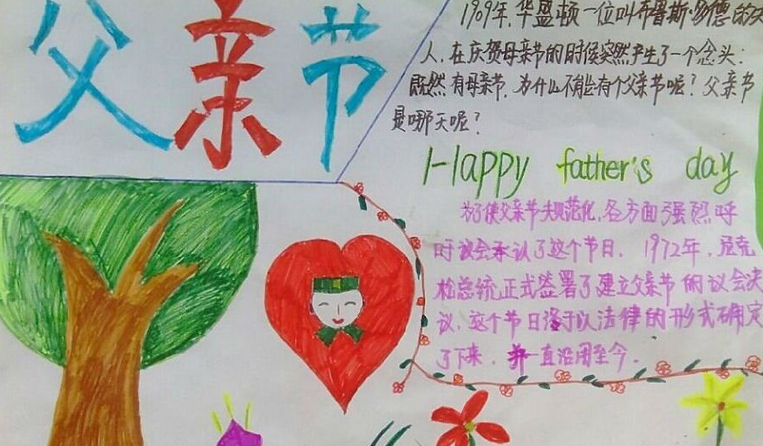 父亲节
1909年,华盛顿一位叫布鲁斯·多德的夫
人,在庆贺母亲节的时候突然产生了一个念头:
既然有母亲节,为什么不能有个父亲节呢?父亲节
是哪天呢?
Happy father's day
为了使父亲节规范化,各方面强烈呼
吁议会承认了这个节日。1972年,尼克
松总统正式签署了建立父亲节的议会决
议。这个节日终于以法律的形式确定
了下来,并一直沿用至今.